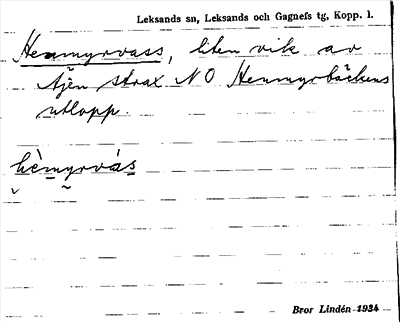 Leksands sn, Leksands och Gagnefs tg, Kopp. l.
Henmyrvass, liten vik av
sjön strax NO Henmyrbäckens
utlopp.
hèmyrvás
Bror Lindén 1934